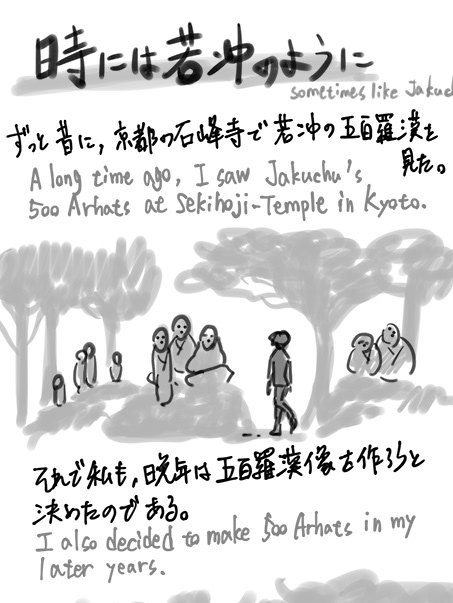 時には若冲のように
sometimes like Jakuc
ずっと昔に，京都の石峰寺で若冲の五百羅漢を
見た。
A long time ago, I saw Jakuchu's
500 Arhats at Sekihoji-Temple in Kyoto.
それで私も，晩年は五百羅漢像を作ろうと
決めたのである。
I also decided to make 500 Arhats in my
later years.